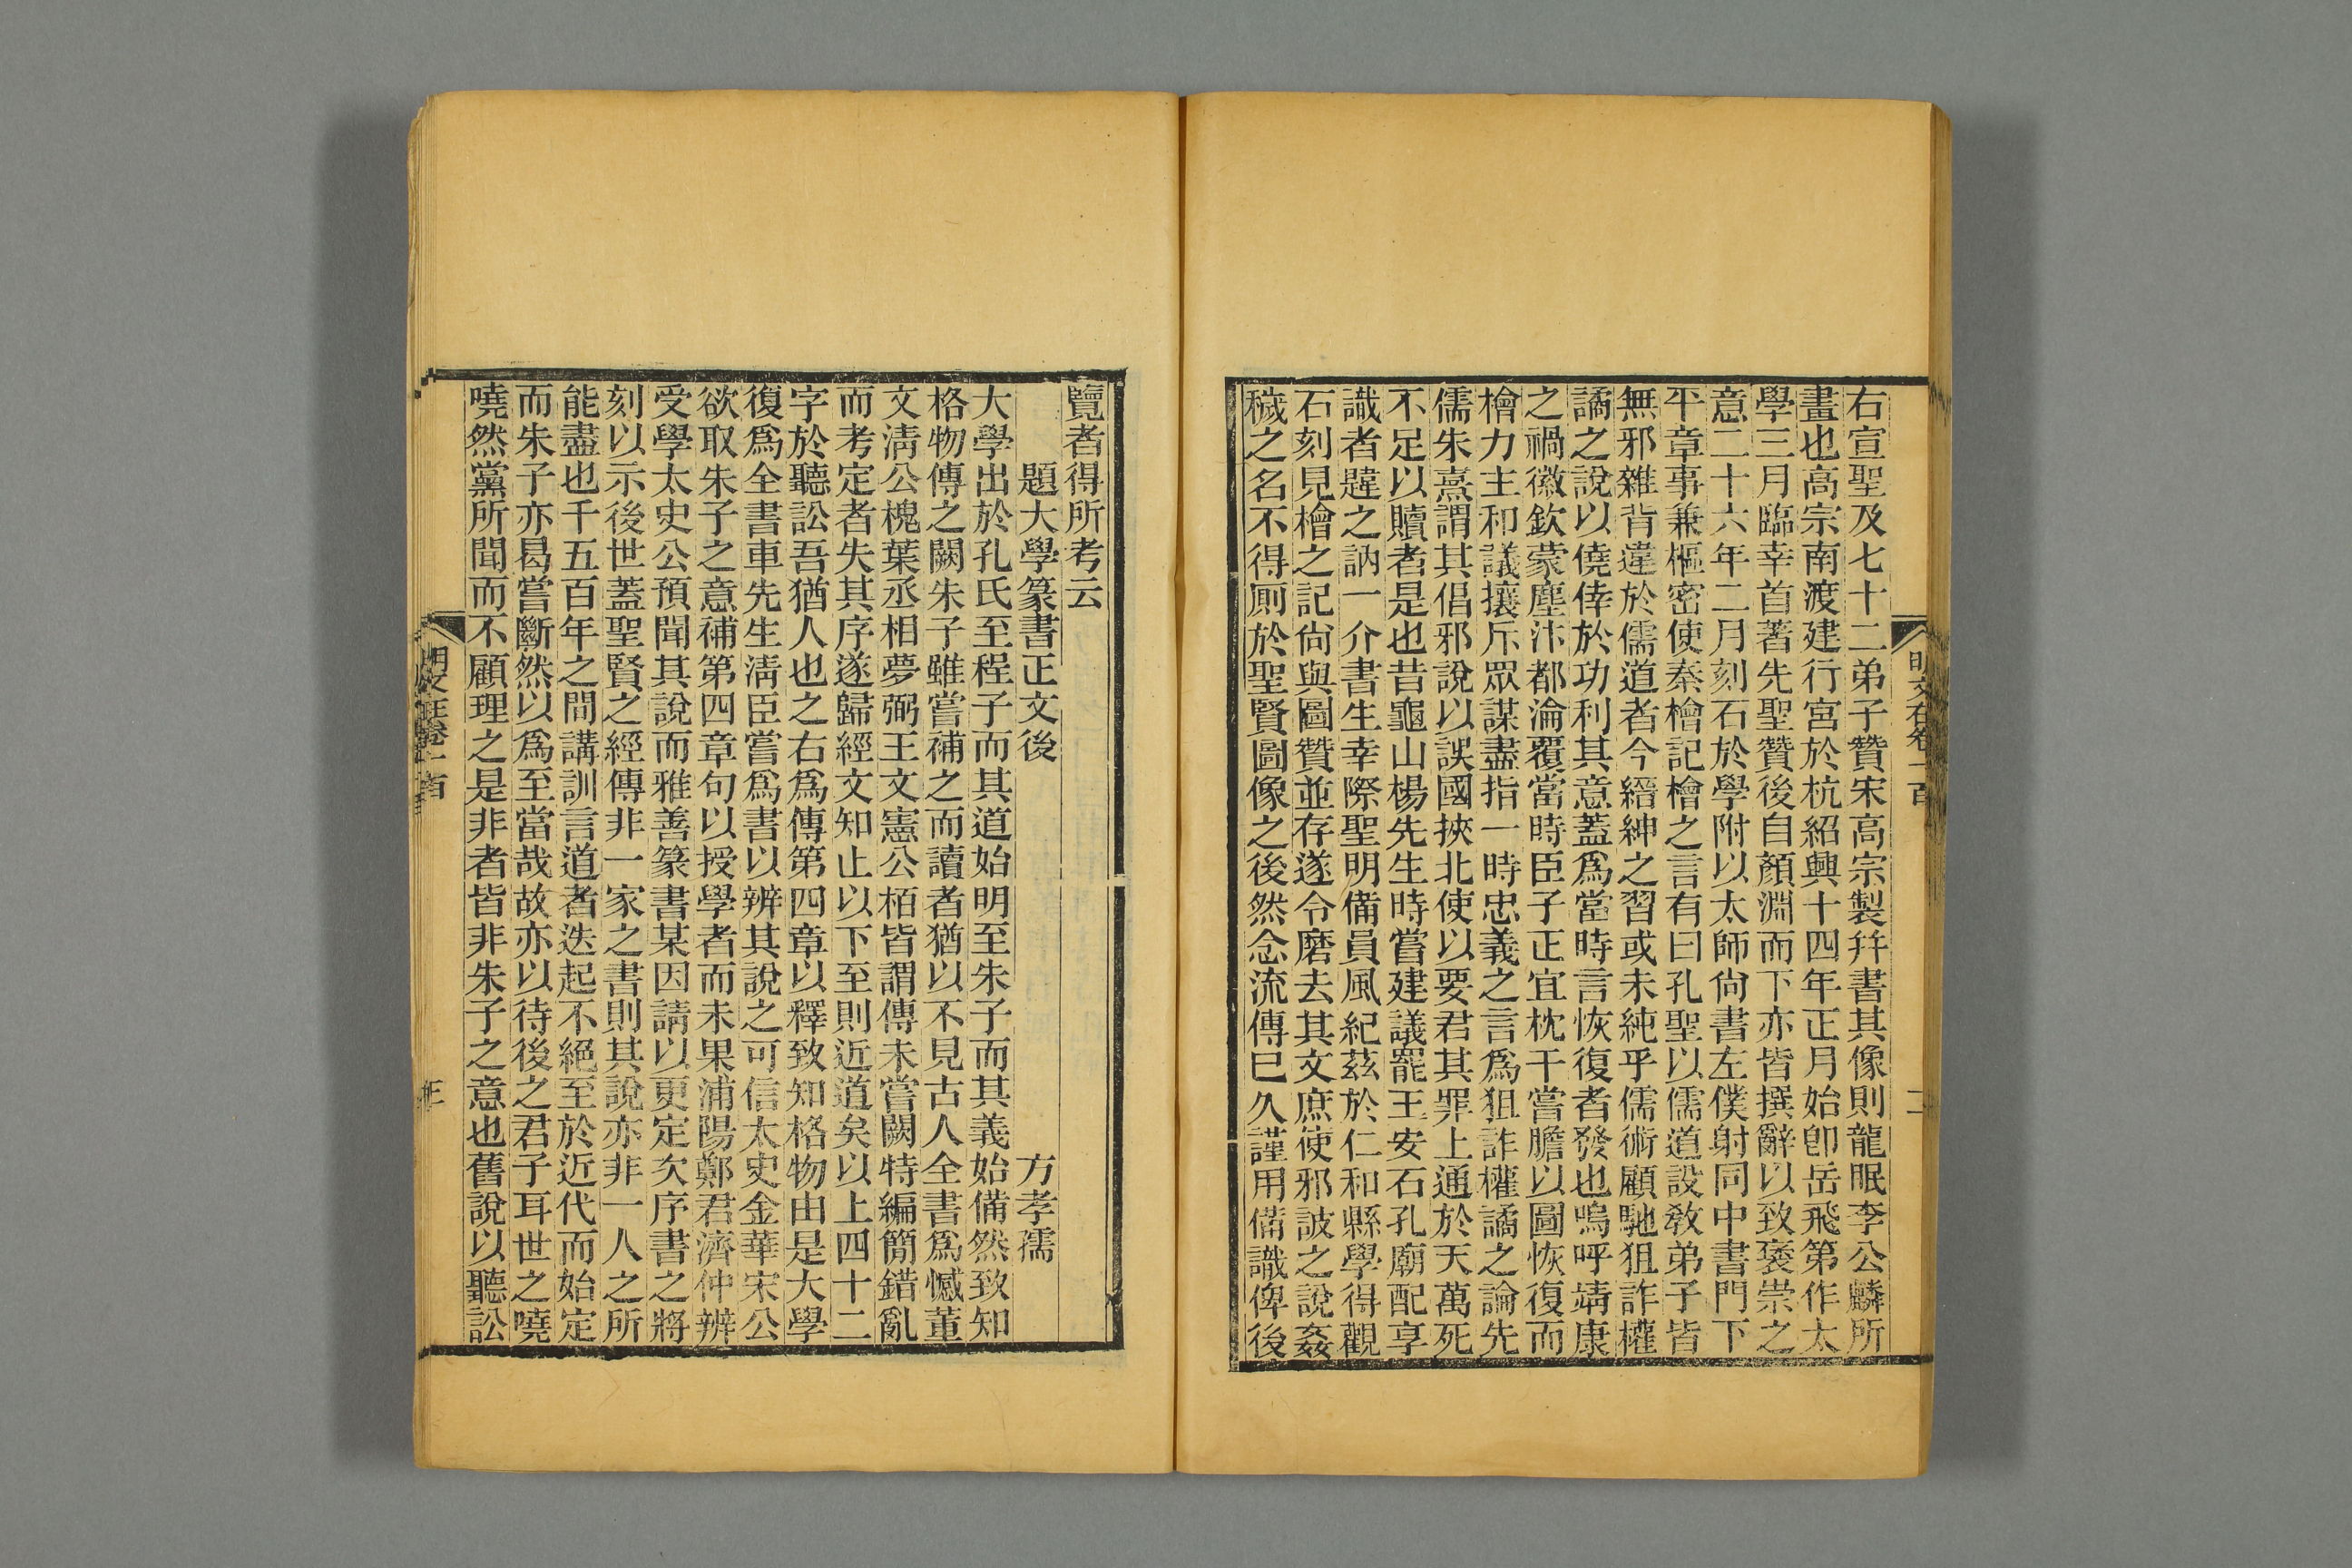 右宣聖及七十二弟子贊宋高宗製并書其像則龍眠李公麟所
畫也高宗南渡建行宮於杭紹興十四年正月始卽岳飛第作太
學三月臨幸首著先聖贊後自顏淵而下亦皆撰辭以致褒崇之
意二十六年二月刻石於學附以太師尙書左僕射同中書門下
平章事兼樞密使秦檜記檜之言有曰孔聖以儒道設敎弟子皆
無邪雜背違於儒道者今縉紳之習或未純乎儒術顧馳狙詐權
譎之說以僥倖於功利其意蓋爲當時言恢復者發也嗚呼靖康
之禍徽欽蒙塵汴都淪覆當時臣子正宜枕干嘗膽以圖恢復而
檜力主和議攘斥眾謀盡指一時忠義之言爲狙詐權譎之論先
儒朱熹謂其倡邪說以誤國挾北使以要君其罪上通於天萬死
不足以贖者是也昔龜山楊先生時嘗建議罷王安石孔廟配享
識者韙之訥一介書生幸際聖明備員風紀茲於仁和縣學得觀
石刻見檜之記尙與圖贊並存遂令磨去其文庶使邪詖之說姦
穢之名不得厠於聖賢圖像之後然念流傳巳久謹用備識俾後
明文在卷一百
二
覽者得所考云
題大學篆書正文後 方孝孺
大學出於孔氏至程子而其道始明至朱子而其義始備然致知
格物傳之闕朱子雖嘗補之而讀者猶以不見古人全書爲憾董
文淸公槐葉丞相夢弼王文憲公栢皆謂傳未嘗闕特編簡錯亂
而考定者失其序遂歸經文知止以下至則近道矣以上四十二
字於聽訟吾猶人也之右爲傳第四章以釋致知格物由是大學
復爲全書車先生淸臣嘗爲書以辨其說之可信太史金華宋公
欲取朱子之意補第四章句以授學者而未果浦陽鄭君濟仲辨
受學太史公預聞其說而雅善篆書某因請以更定次序書之將
刻以示後世蓋聖賢之經傳非一家之書則其說亦非一人之所
能盡也千五百年之間講訓言道者迭起不絕至於近代而始定
而朱子亦曷嘗斷然以爲至當哉故亦以待後之君子耳世之嘵
嘵然黨所聞而不顧理之是非者皆非朱子之意也舊說以聽訟
明文在卷一百
三